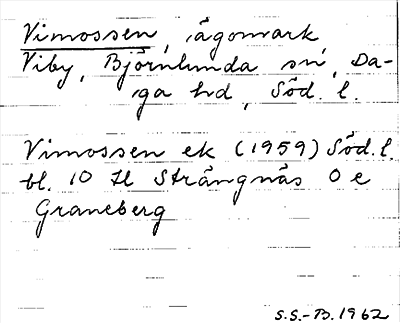 Vimossen, ägomark,
Viby, Björnlunda sn, Da-
ga hd, Söd. l.
Vimossen ek (1959) Söd. l.
bl. 10 H Strängnäs O e
Graneberg
S.S.-B. 1962